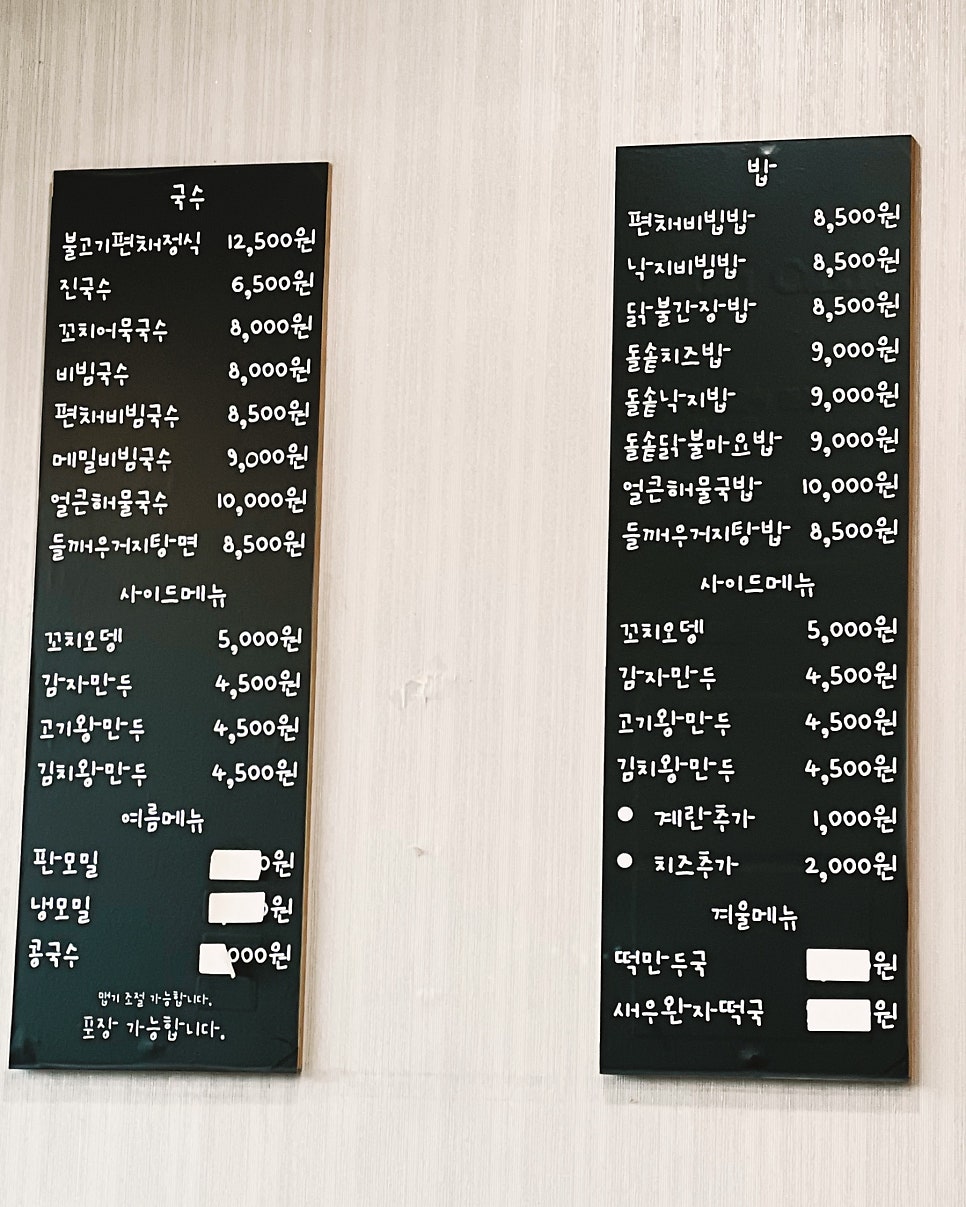 국수
불고기편채정식 12,500원
진국수 6,500원
꼬치어묵국수 8,000원
비빔국수 8,000원
편채비빔국수 8,500원
메밀비빔국수 9,000원
얼큰해물국수 10,000원
들깨우거지탕면 8,500원
사이드메뉴
꼬치오뎅 5,000원
감자만두 4,500원
고기왕만두 4,500원
김치왕만두 4,500원
여름메뉴
판모밀 0원
냉모밀 원
콩국수 ,000원
맵기 조절 가능합니다.
포장 가능합니다.
밥
편채비빔밥 8,500원
낙지비빔밥 8,500원
닭불간장밥 8,500원
돌솥치즈밥 9,000원
돌솥낙지밥 9,000원
돌솥닭불마요밥 9,000원
얼큰해물국밥 10,000원
들깨우거지탕밥 8,500원
사이드메뉴
꼬치오뎅 5,000원
감자만두 4,500원
고기왕만두 4,500원
김치왕만두 4,500원
● 계란추가 1,000원
● 치즈추가 2,000원
겨울메뉴
떡만두국 원
새우완자떡국 원